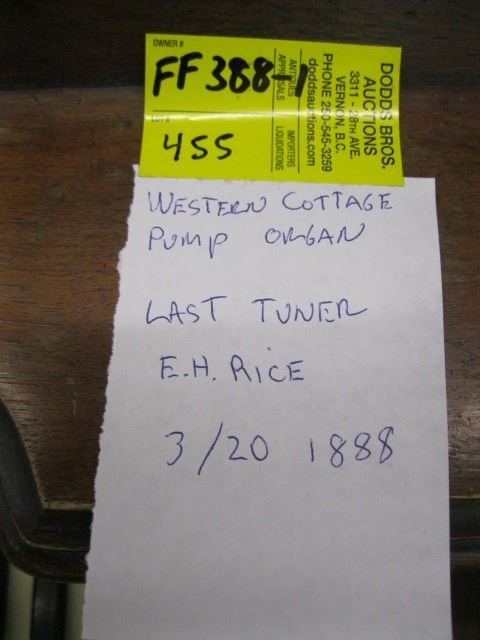 OWNER #
FF 388-1
LOT #
455
DODDS BROS.
AUCTIONS
3311 - 28TH AVE.
VERNON, B.C.
PHONE 250-545-3259
doddsauctions.com
ANTIQUES IMPORTERS
APPRAISALS LIQUIDATIONS
WESTERN COTTAGE
PUMP ORGAN
LAST TUNER
E.H. RICE
3/20 1888